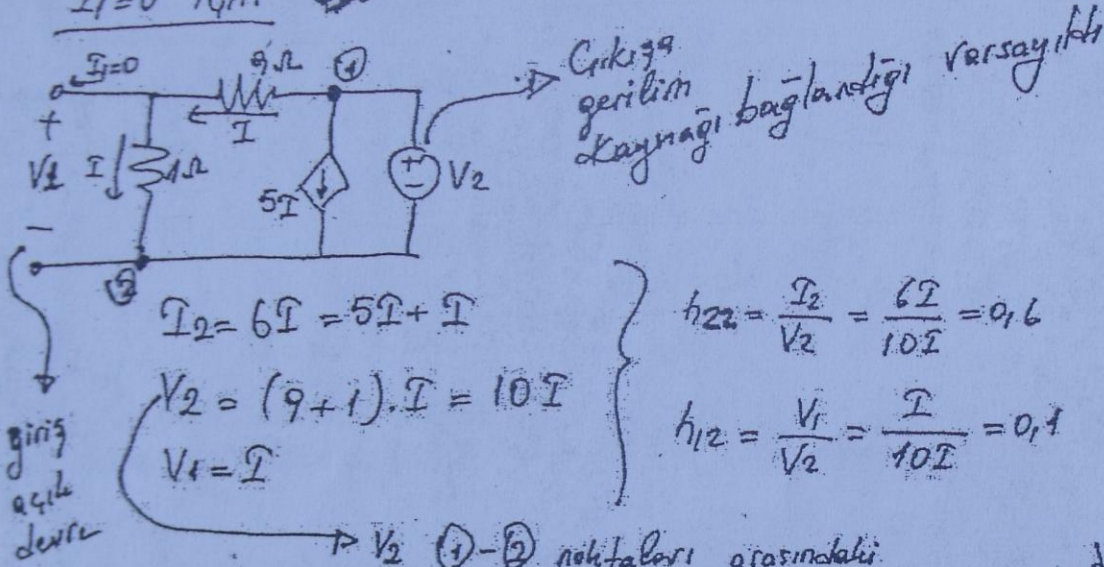 I1=0 için
I1=0
9Ω
①
I
+
V1
I
1Ω
5I
+
-
V2
-
②
Çıkışa
gerilim
kaynağı bağlandığı varsayıldı
giriş
açık
devre
I2 = 6I = 5I + I
V2 = (9+1).I = 10I
V1 = I
h22 = I2/V2 = 6I/10I = 0,6
h12 = V1/V2 = I/10I = 0,1
V2 ①-② noktaları arasındaki